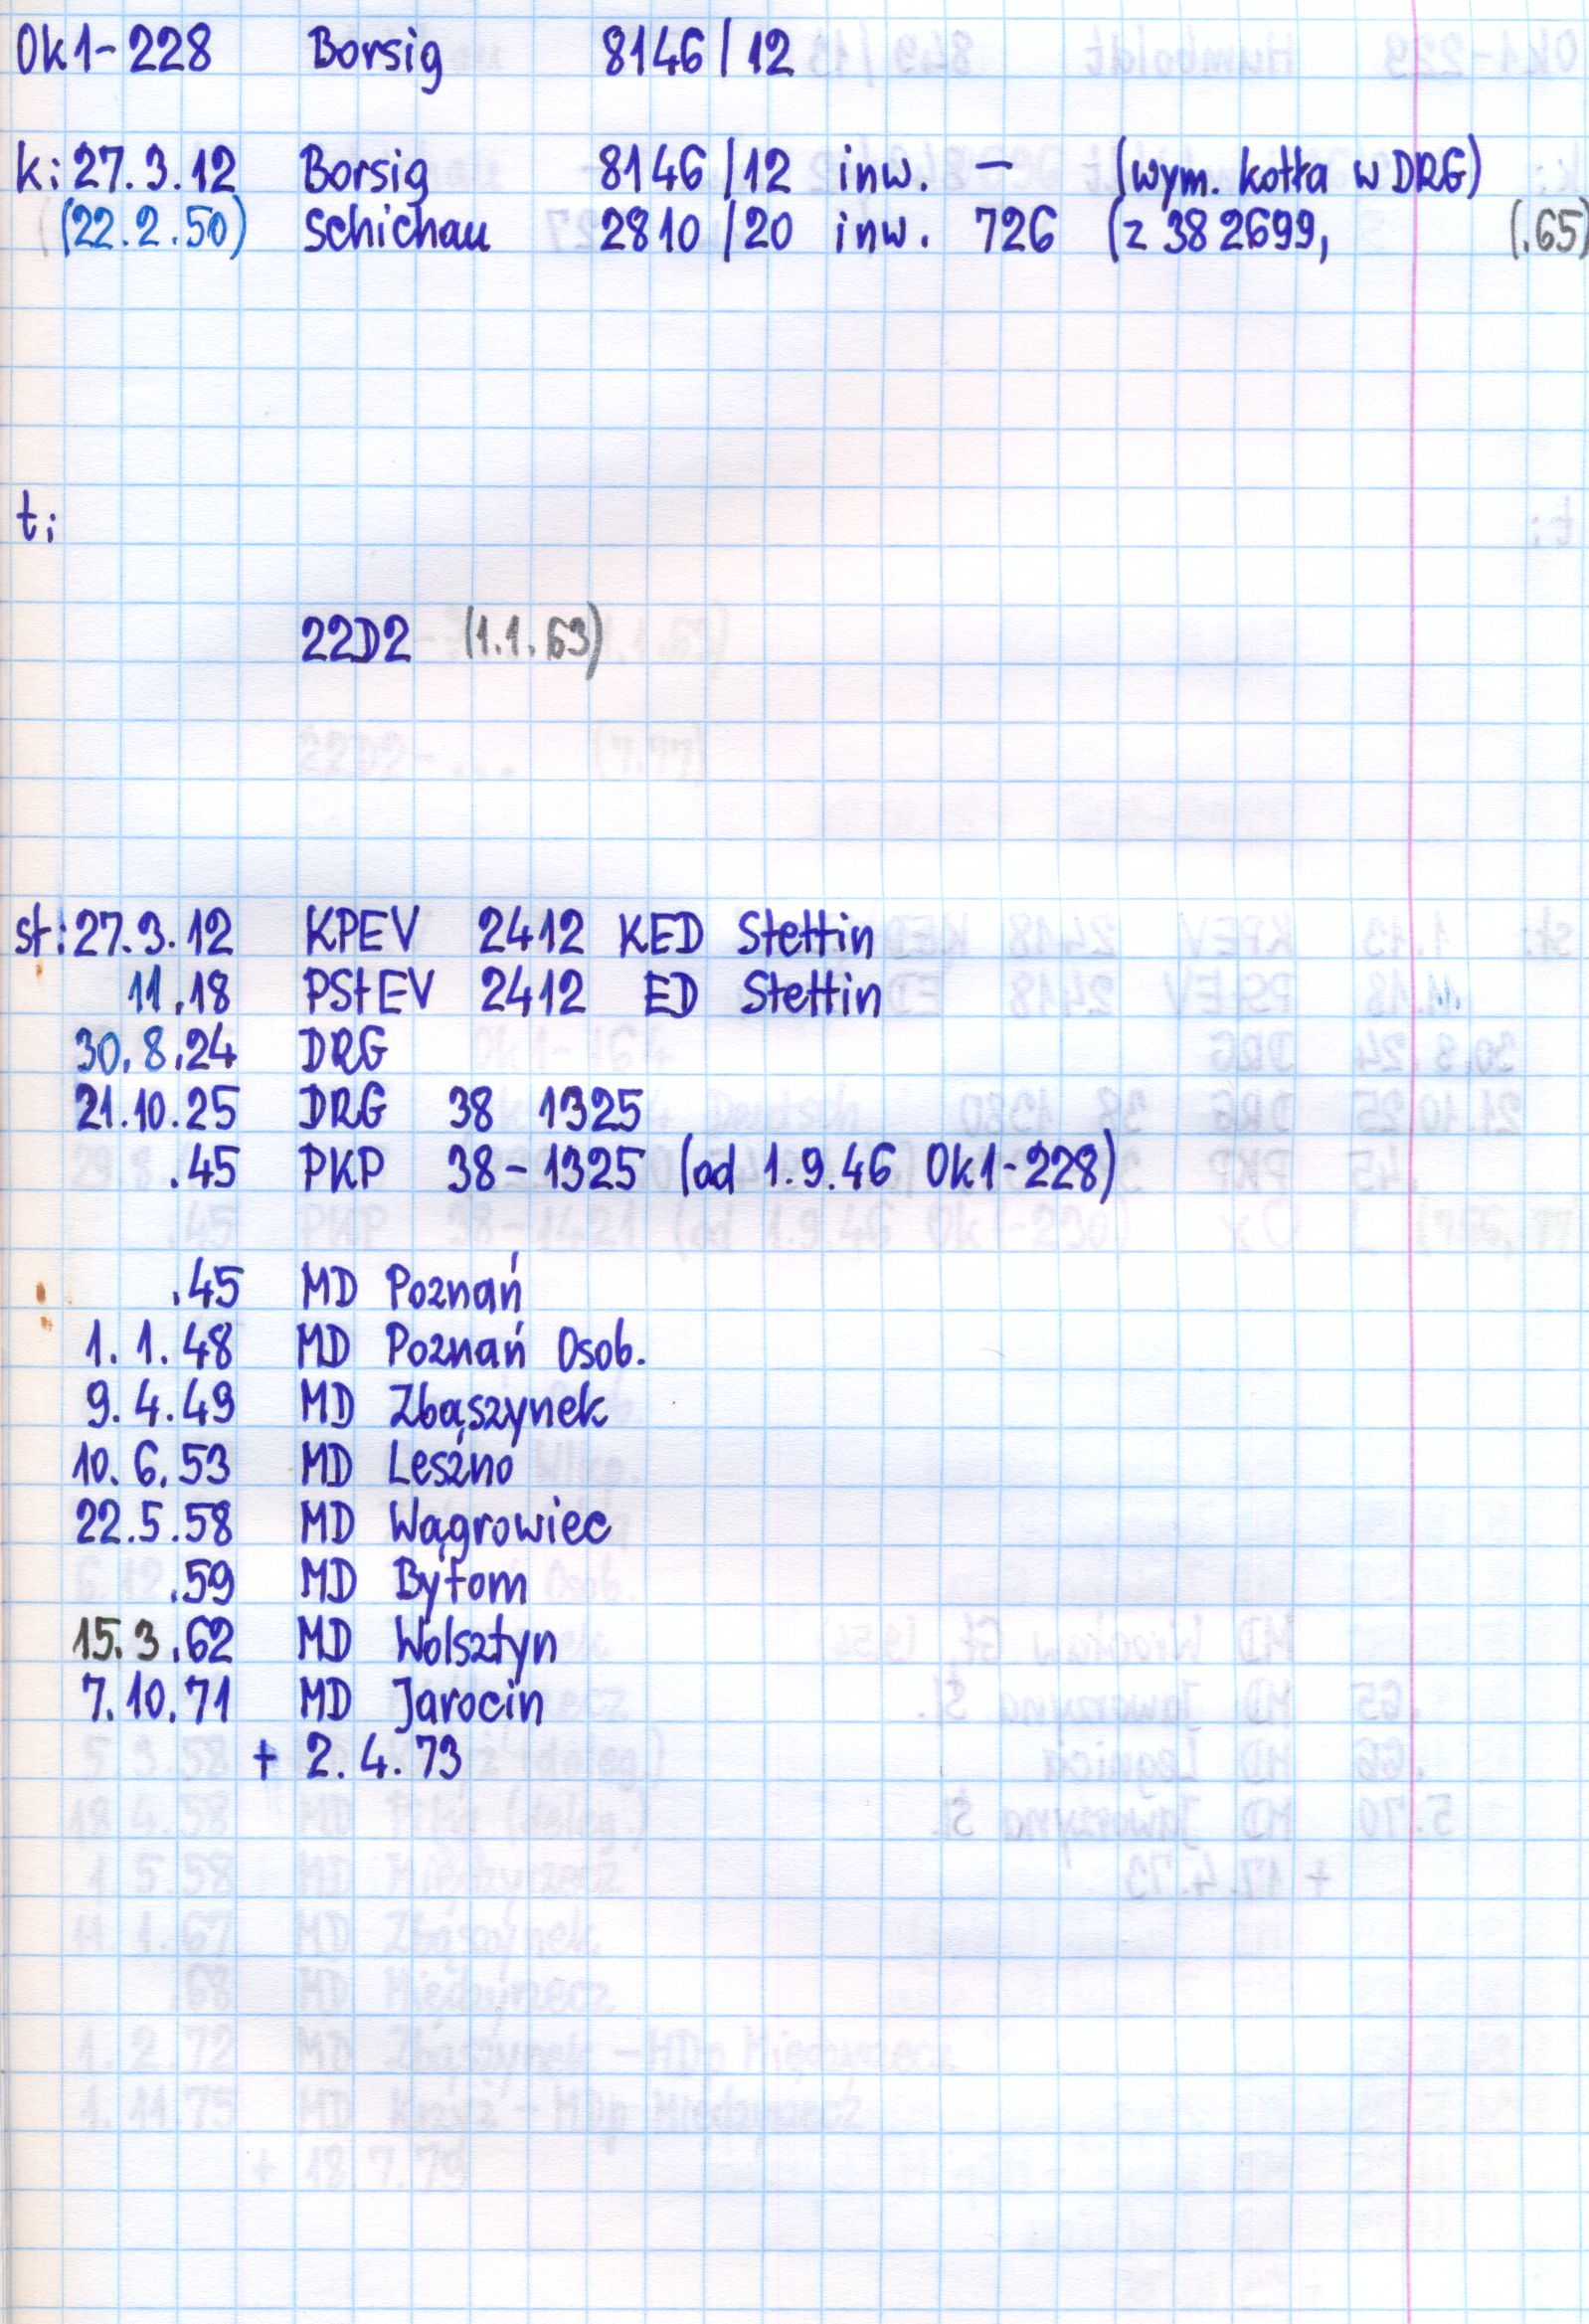 Ok1-228 Borsig 8146/12
k: 27.3.12 Borsig 8146/12 inw. - (wym. kotła w DRG)
(22.2.50) Schichau 2810/20 inw. 726 (z 38 2699, (.65)
t:
22D2 (1.1.63)
st: 27.3.12 KPEV 2412 KED Stettin
11.18 PStEV 2412 ED Stettin
30.8.24 DRG
21.10.25 DRG 38 1325
.45 PKP 38-1325 (od 1.9.46 Ok1-228)
.45 MD Poznań
1.1.48 MD Poznań Osob.
9.4.49 MD Zbąszynek
10.6.53 MD Leszno
22.5.58 MD Wągrowiec
.59 MD Bytom
15.3.62 MD Wolsztyn
7.10.71 MD Jarocin
+ 2.4.73